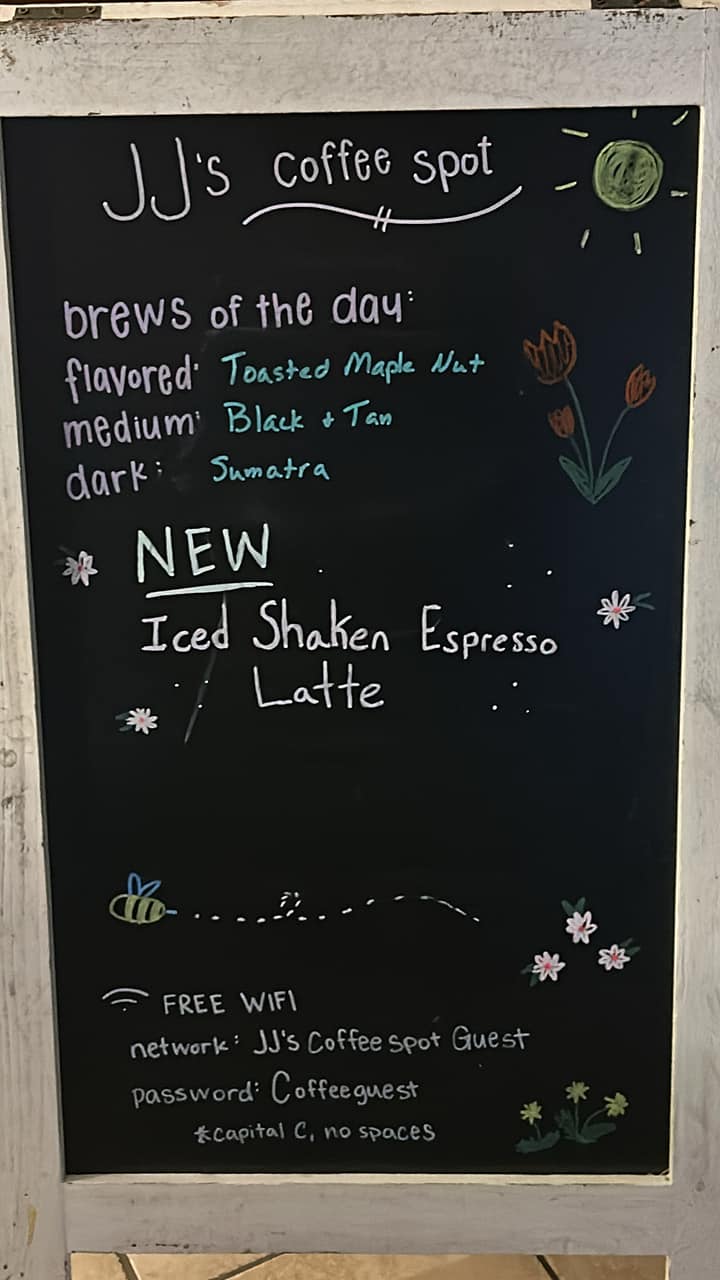 JJ's coffee spot
brews of the day:
flavored: Toasted Maple Nut
medium: Black + Tan
dark: Sumatra
NEW
Iced Shaken Espresso
Latte
FREE WIFI
network: JJ's Coffee spot Guest
password: Coffeeguest
*capital C, no spaces